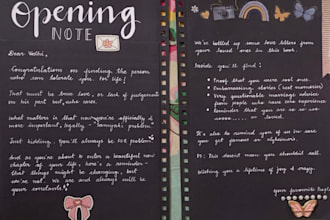 Opening
NOTE
Dear Vidhi,
Congratulations on finding the person
who can tolerate you for life!
That must be true love, or lack of judgement
on his part but, who cares.
What matters is that now you're officially &
more important, legally - 'his problem'
Just kidding. You'll always be our problem
And as you're about to enter a beautiful new
chapter of your life, here's a reminder-
that things might be changing, but
we're not. We are and always will be
your constants.
We've rolled up some love letters from
your loved ones in this book.
Inside you'll find:
• Proof that you were cool once.
• Embarrassing stories (& sweet memories)
• Very questionable marriage advice
from people who have no experience
• Reminder that you are so so
loved.
It's also to remind you of us in case
you get famous or Alzheimer's.
PS: This doesn't mean you shouldn't call.
Wishing you a lifetime of joy & orgasms.
Your favourite people